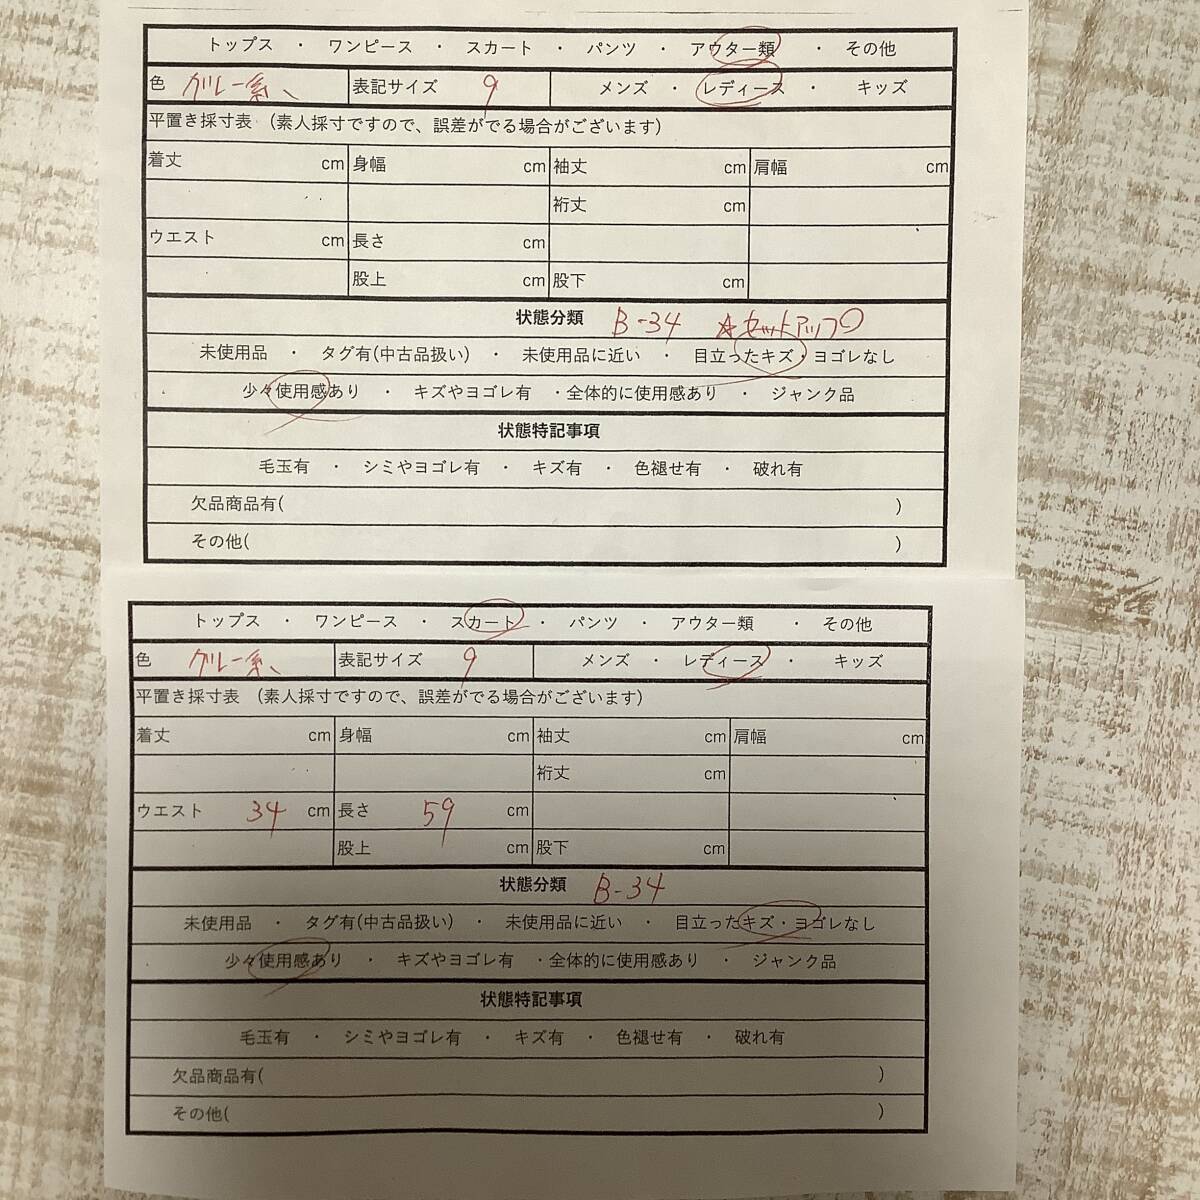 トップス ・ ワンピース ・ スカート ・ パンツ ・ アウター類 ・ その他
色 グレー系、 表記サイズ 9 メンズ ・ レディース ・ キッズ
平置き採寸表 (素人採寸ですので、誤差がでる場合がございます)
着丈 cm 身幅 cm 袖丈 cm 肩幅 cm
裄丈 cm
ウエスト cm 長さ cm
股上 cm 股下 cm
状態分類 B-34 ☆セットアップ○
未使用品 ・ タグ有(中古品扱い) ・ 未使用品に近い ・ 目立ったキズ・ヨゴレなし
少々使用感あり ・ キズやヨゴレ有 ・全体的に使用感あり ・ ジャンク品
状態特記事項
毛玉有 ・ シミやヨゴレ有 ・ キズ有 ・ 色褪せ有 ・ 破れ有
欠品商品有( )
その他( )
トップス ・ ワンピース ・ スカート ・ パンツ ・ アウター類 ・ その他
色 グレー系、 表記サイズ 9 メンズ ・ レディース ・ キッズ
平置き採寸表 (素人採寸ですので、誤差がでる場合がございます)
着丈 cm 身幅 cm 袖丈 cm 肩幅 cm
裄丈 cm
ウエスト 34 cm 長さ 59 cm
股上 cm 股下 cm
状態分類 B-34
未使用品 ・ タグ有(中古品扱い) ・ 未使用品に近い ・ 目立ったキズ・ヨゴレなし
少々使用感あり ・ キズやヨゴレ有 ・全体的に使用感あり ・ ジャンク品
状態特記事項
毛玉有 ・ シミやヨゴレ有 ・ キズ有 ・ 色褪せ有 ・ 破れ有
欠品商品有( )
その他( )